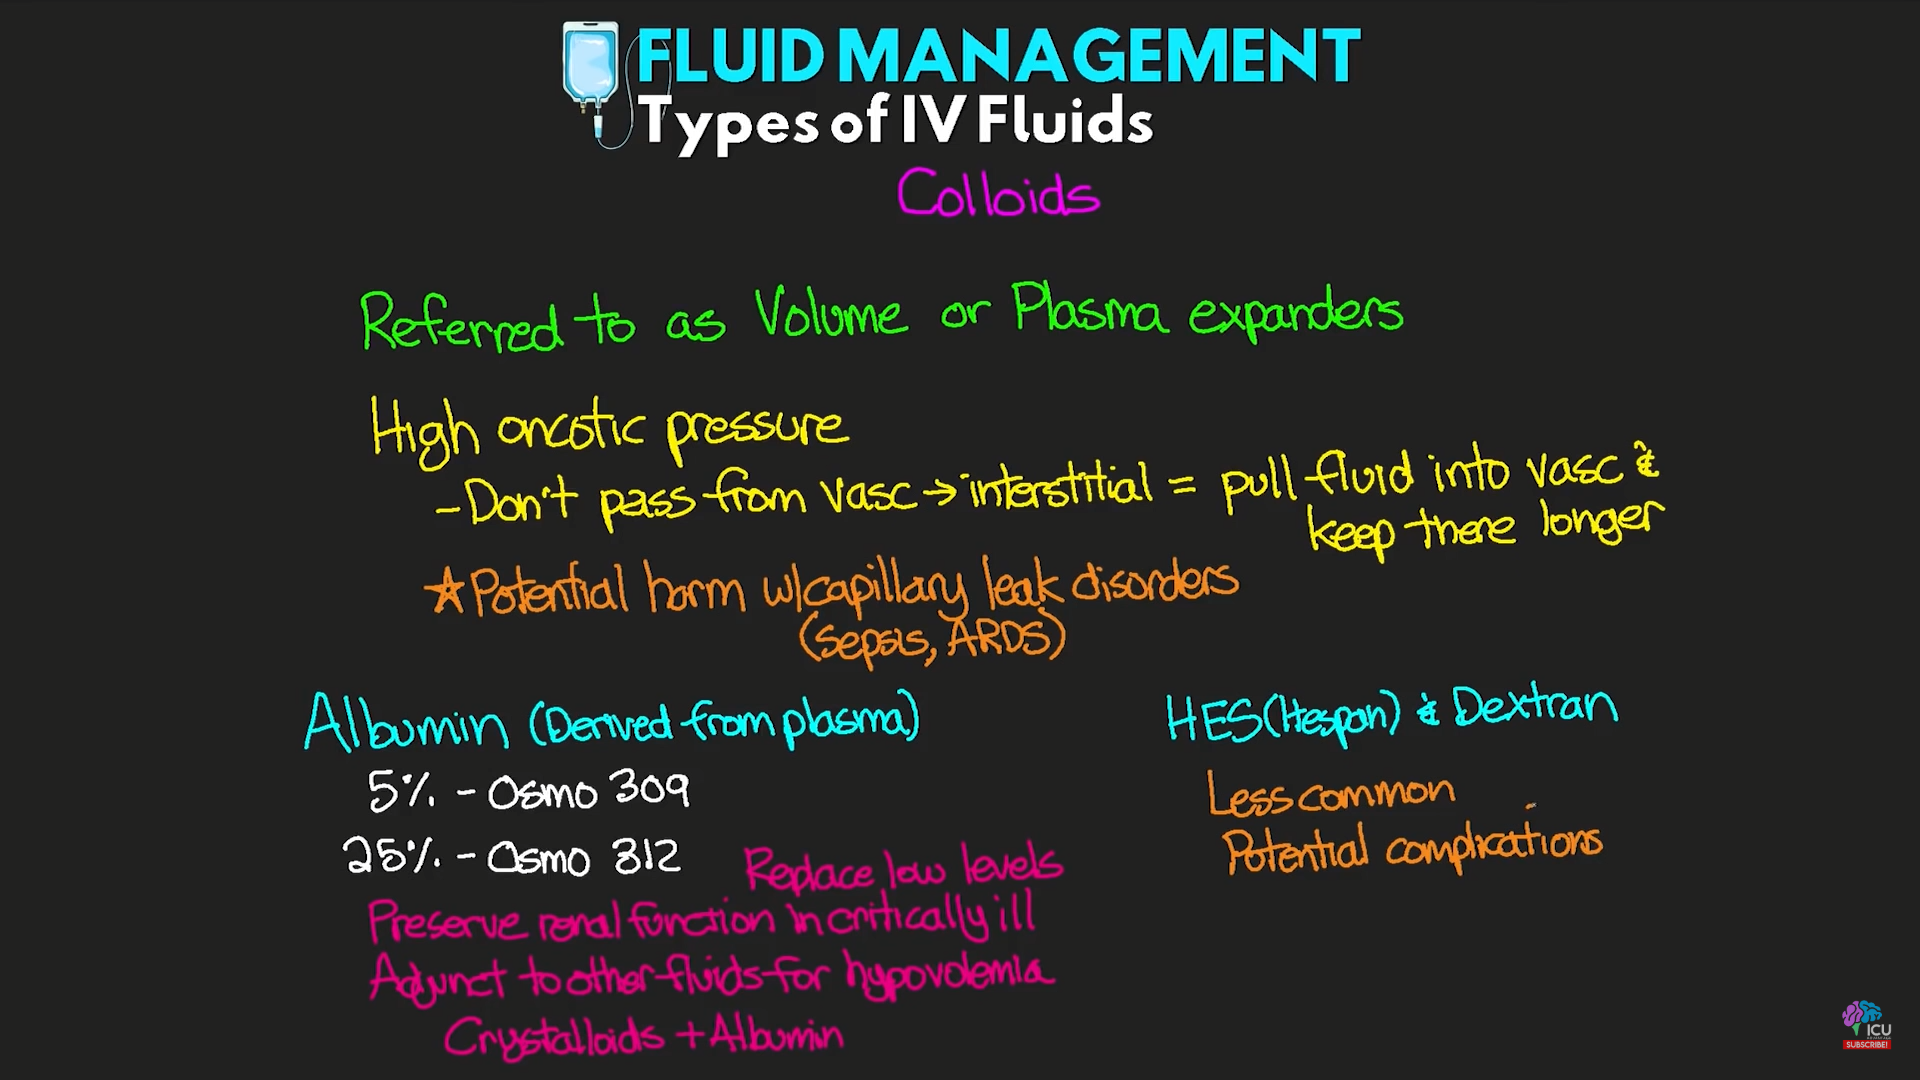 FLUID MANAGEMENT
Types of IV Fluids
Colloids
Referred to as Volume or Plasma expanders
High oncotic pressure
- Don't pass from vasc → interstitial = pull fluid into vasc &
keep there longer
☆ Potential harm w/capillary leak disorders
(sepsis, ARDS)
Albumin (Derived from plasma)
5% - Osmo 309
25% - Osmo 312
Replace low levels
Preserve renal function in critically ill
Adjunct to other fluids for hypovolemia
Crystalloids + Albumin
HES (Hespan) & Dextran
Less common
Potential complications
ICU
SUBSCRIBE!